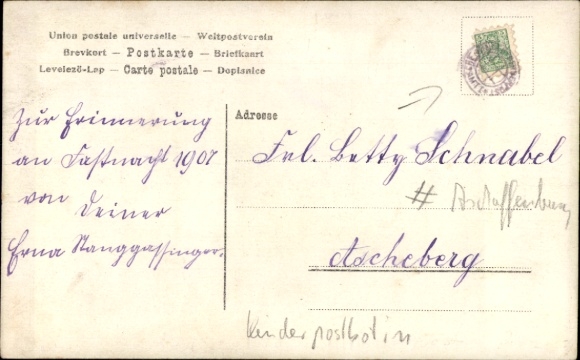 Union postale universelle — Weltpostverein
Brevkort — Postkarte — Briefkaart
Levelező-Lap — Carte postale — Dopisnice
Zur Erinnerung
an Fastnacht 1907
von Deiner
Erna Stanggassinger.
Adresse
Frl. Betty Schnabel
# Aschaffenburg
Ascheberg
Kinderpostbotin